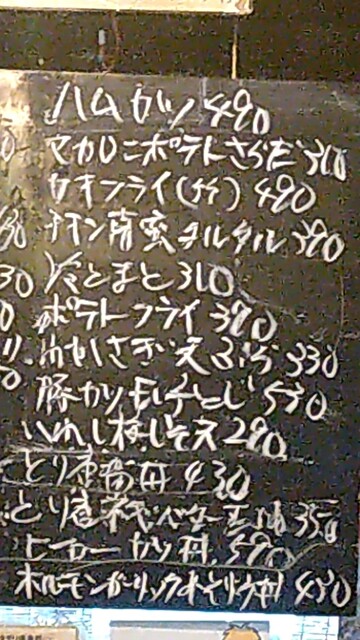 ハムカツ 490
マカロニポテトさらだ 300
カキフライ(ケ) 490
チキン南蛮タルタル 390
冷とまと 310
ポテトフライ 390
わかさぎ天ぷら 330
豚カツ玉子とじ 530
いわし梅しそ天 290
とり唐 丼 430
とり唐ネギバター玉 350
ヒーローカツ丼 590
ホルモンガーリック 450